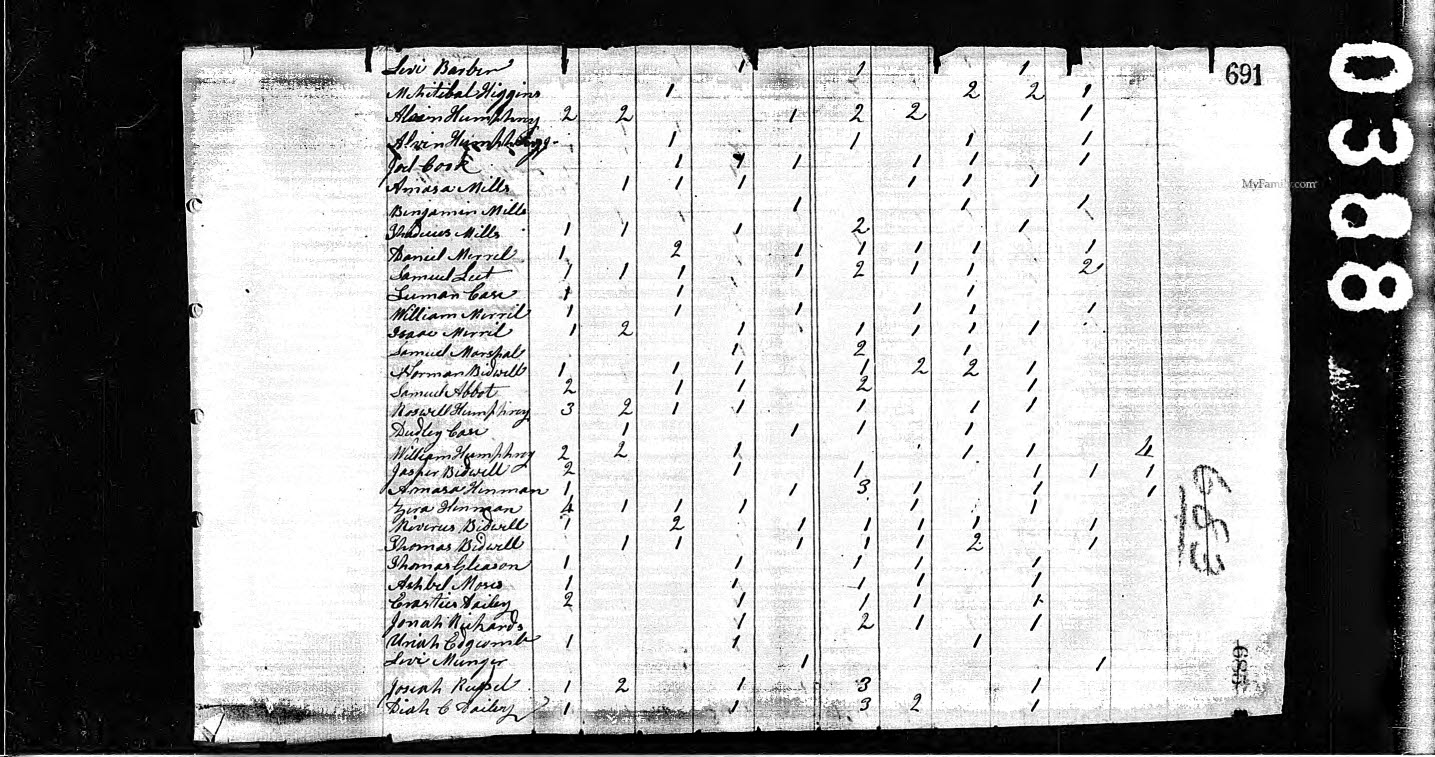 691
03888
MyFamily.com
Levi Barber 1 1 1
Mehitibal Higgins 1 2 2 1
Alvin Humphrey 2 2 1 2 2 1
Alvin 1 1 1 1
Joel Cook 1 1 1 1 1 1
Amasa Mills 1 1 1 1 1 1
Benjamin Mills 1 1 1
Mills 1 1 1 2 1
Daniel Merril 1 2 1 1 1 1 1
Samuel 1 1 1 1 2 1 1 2
Luman Case 1 1 1
William Merril 1 1 1 1 1 1
Isaac Merril 1 2 1 1 1 1 1
Samuel Marshal 1 2 1
Norman Bidwell 1 1 1 1 2 2 1
Samuel Abbot 2 1 1 2 1
Roswell Humphrey 3 2 1 1 1 1 1
Dudley Case 1 1 1 1
William Humphrey 2 2 1 1 1 4
Jasper Bidwell 2 1 1 1 1 1
Amasa Hinman 1 1 3 1 1 1
Zira Hinman 4 1 1 1 1 1
Riverius Bidwell 1 2 1 1 1 1 1
Thomas Bidwell 1 1 1 1 1 2 1
Thomas Gleason 1 1 1 1 1
Ashbel Moses 1 1 1 1 1
Erastus Dailey 2 1 1 1 1
Jonah Richards 1 2 1 1
Uriah Edgcomb 1 1 1
Levi Munger 1 1
Josiah Russel 1 2 1 3 1
C Dailey 1 1 3 2 1
689